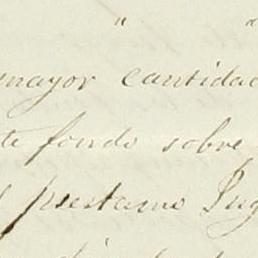 " "
mayor cantidad
te fondo sobre
prestamo Ing